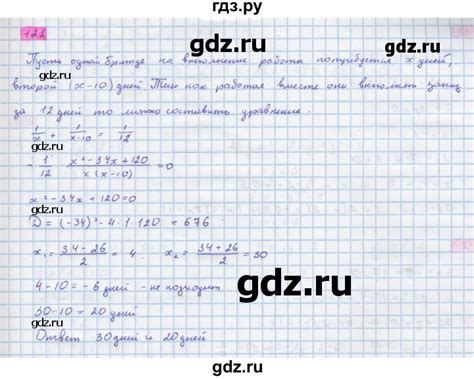 гдз.ру
121
Пусть одной бригаде на выполнение работы потребуется x дней,
второй (x-10) дней. Так как работая вместе они выполнят заказ
за 12 дней то можно составить уравнение.
1/x + 1/(x-10) = 1/12
- 1/12 (x²-34x+120)/(x(x-10)) = 0
x²-34x+120=0
D=(-34)²-4·1·120=676
x₁ = (34-26)/2 = 4 x₂ = (34+26)/2 = 30
4-10=-6 дней - не подходит
30-10=20 дней
Ответ 30 дней и 20 дней
gdz.ru
gdz.ru
gdz.ru
gdz.ru
gdz.ru